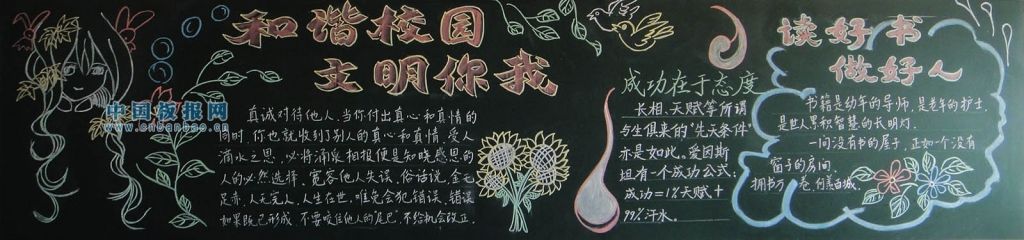 和谐校园
文明你我
中国板报网
www.cnbanbao.cn
真诚对待他人,当你付出真心和真情的
同时,你也就收到了别人的真心和真情,受人
滴水之恩,必将涌泉相报便是知晓感恩的
人的必然选择,宽容他人失误。俗话说,金无
足赤,人无完人,人生在世,难免会犯错误,错误
如果既已形成,不要咬住他人的尾巴,不给机会改正。
成功在于态度
长相、天赋等所谓
与生俱来的“先天条件”
亦是如此。爱因斯
坦有一个成功公式:
成功=1%天赋+
99%汗水。
读好书
做好人
书籍是幼年的导师,是老年的护士,
是世人累积智慧的长明灯.
一间没有书的屋子,正如一个没有
窗子的房间.
拥书万卷,何须百城.